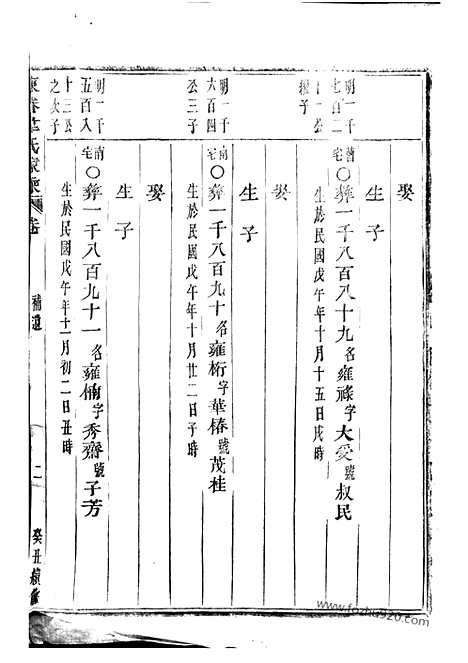 明一千
七百二
十一公
繼子
舊宅〇彝一千八百八十九名雍祿字大受號叔民
生於民國戊午年十月十五日戌時
娶
生子
明一千
六百四
公三子
南宅〇彝一千八百九十名雍桁字華椿號茂桂
生於民國戊午年十月廿二日子時
娶
生子
明一千
五百入
十三公
之次子
南宅〇彝一千八百九十一名雍侕字秀齋號子芳
生於民國戊午年十一月初二日丑時
娶
生子
氏家乘
補遺
二
癸丑續修
www.fozhu920.com